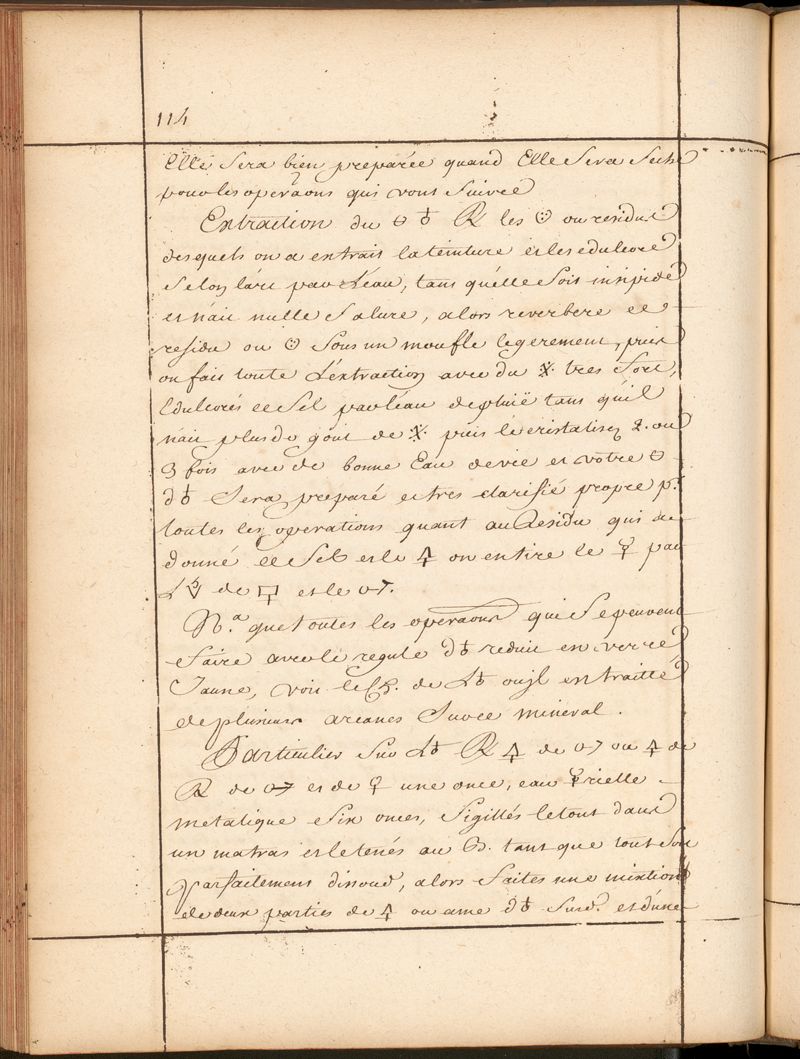 114
Elle sera bien preparée quand Elle sera seche
pour les operãons qui vont suivre
Extraction du 🜔 ♁ ℞ les ou residus
desquels on a extrait la teinture et les edulcore
selon l'art par l'eau, tant qu'elle soit insipide
et n'ait nulle salure, alors reverbere ce
residu ou sous un moufle legerement, puis
on fait toute l'extraction avec du 🜊 tres fort,
Edulcorés ce sel par l'eau de pluië tant qu'il
n'ait plus de gout de 🜊 puis le cristalisez 2. ou
3 fois avec de bonne Eau de vie et votre 🜔
d♁ sera preparé et tres clarifié propre p.r
toutes les operations quant au Residu qui a
donné ce Sel et le 🜍 on en tire le ☿ par
l' de et le
N.a que toutes les operãons qui se peuvent
faire avec le regule d♁ reduit en verre
Jaune, voir le Ch. de l♁ ou jl en traitte
de plusieurs arcanes sur ce mineral.
Particulier sur l♁ ℞ 🜍 de ou 🜍 de
de et de ♀ une once, eau ☿rielle
metalique six onces, sigillés le tout dans
un matras et le tenés au B. tant que tout soit
parfaitement dissoud, alors faites une mixtion
de deux parties de 🜍 ou ame d♁ susd. et d'une